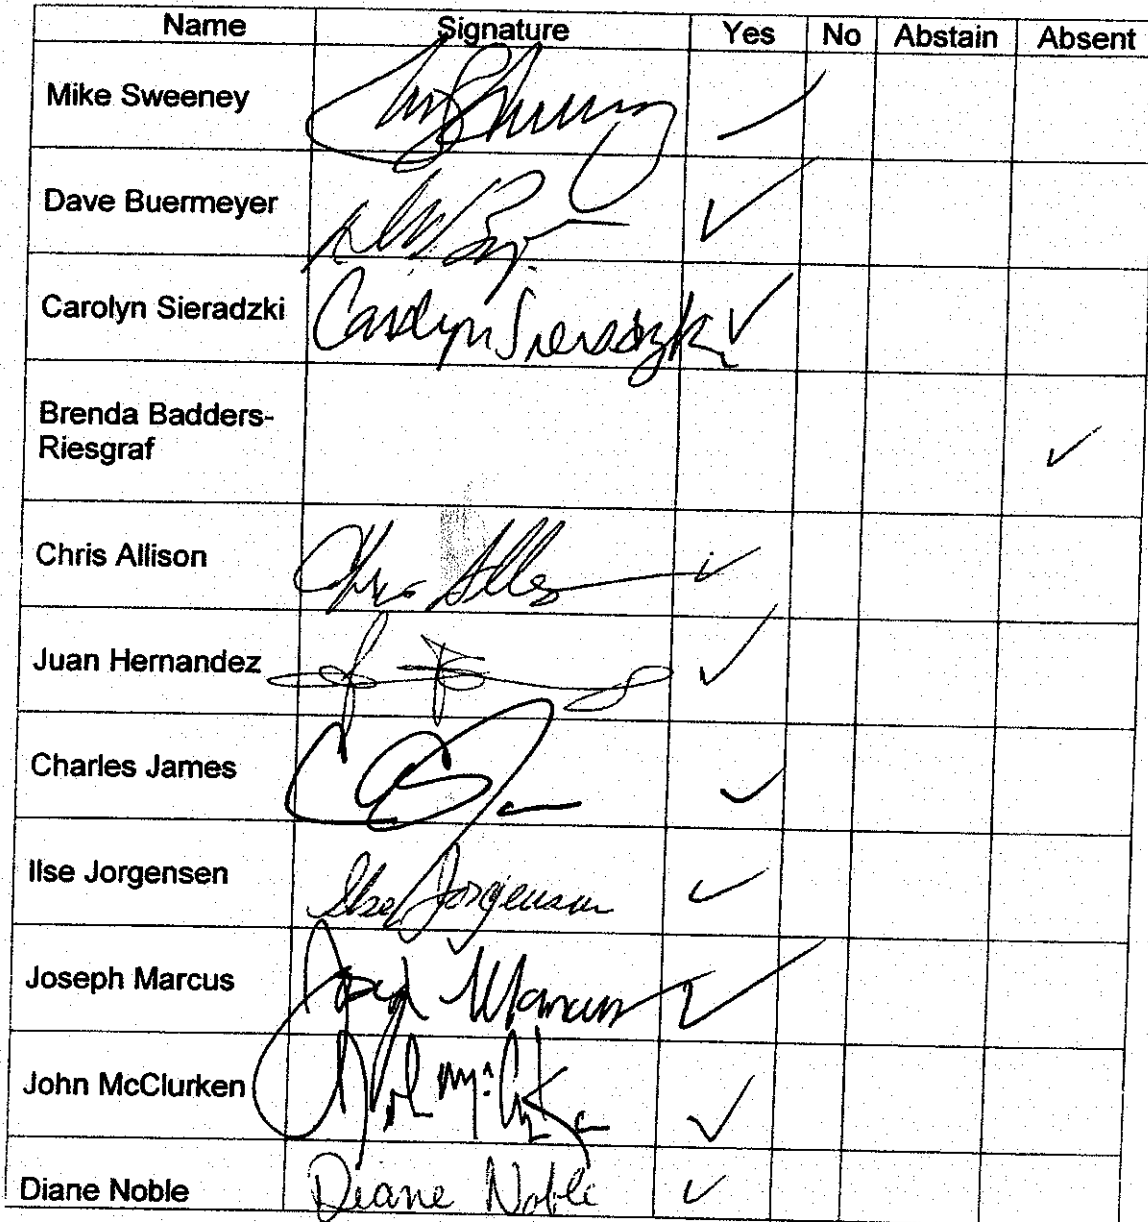 Name Signature Yes No Abstain Absent
Mike Sweeney ✓
Dave Buermeyer ✓
Carolyn Sieradzki Carolyn Sieradzki ✓
Brenda Badders-
Riesgraf ✓
Chris Allison Chris ✓
Juan Hernandez ✓
Charles James ✓
Ilse Jorgensen Ilse Jorgensen ✓
Joseph Marcus Joseph Marcus ✓
John McClurken John ✓
Diane Noble Diane Noble ✓